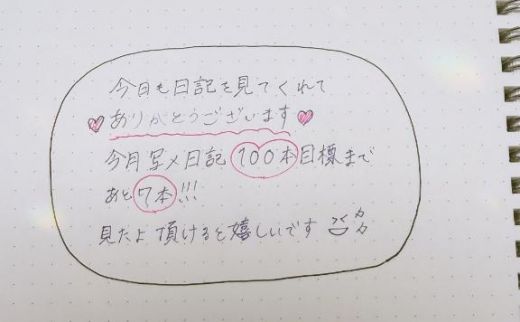 今日も日記を見てくれて
ありがとうございます
今月写メ日記100本目標まで
あと7本!!!
見たよ頂けると嬉しいです